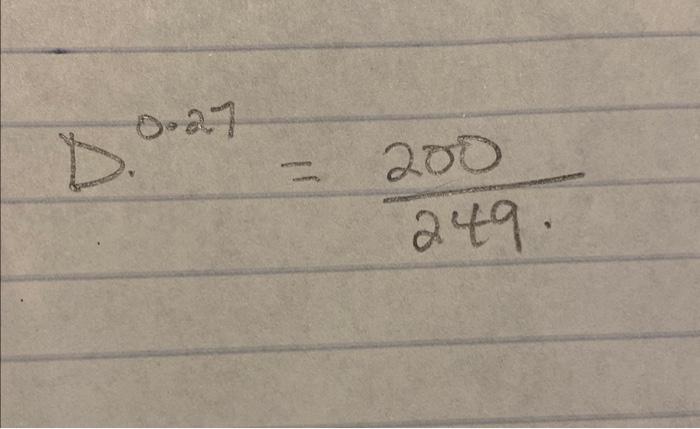 D.^0.27 = 200/249.